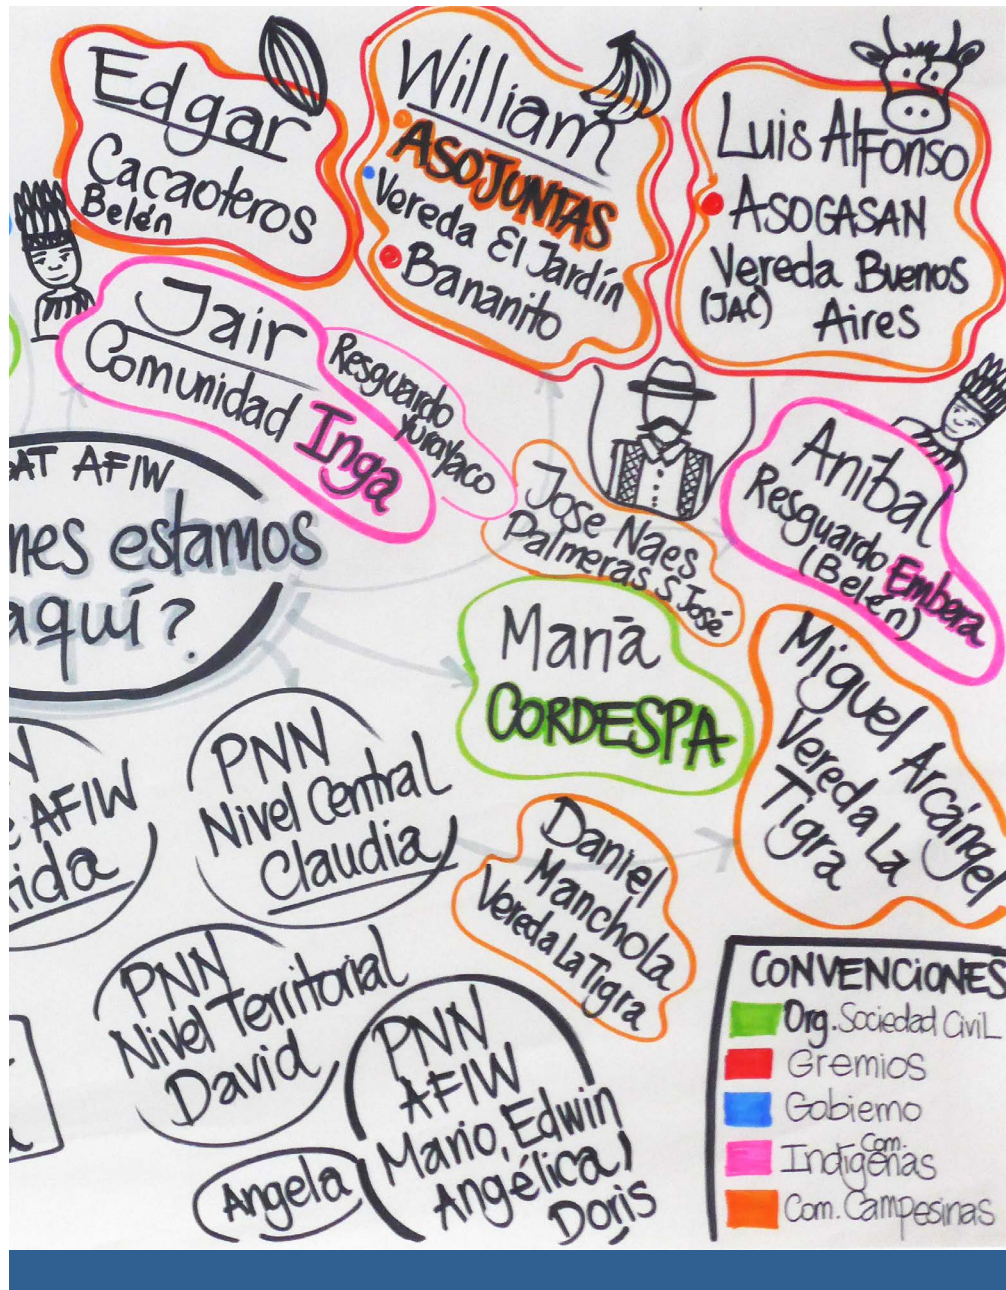 Edgar
Cacaoteros
Belén
William
ASOJUNTAS
Vereda El Jardín
Bananito
Luis Alfonso
ASOGASAN
Vereda Buenos
(JAC) Aires
Jair
Comunidad Inga
Resguardo
Yurayaco
AFIW
estamos
aquí?
Jose Naes
Palmeras S José
Aníbal
Resguardo Embera
(Belén)
María
CORDESPA
Miguel Arcángel
Vereda La
Tigra
AFIW
PNN
Nivel Central
Claudia
Daniel
Manchola
Vereda La Tigra
PNN
Nivel Territorial
David
PNN
AFIW
Mario, Edwin
Angélica
Doris
Angela
CONVENCIONES
Org. Sociedad Civil
Gremios
Gobierno
Com.
Indígenas
Com. Campesinas